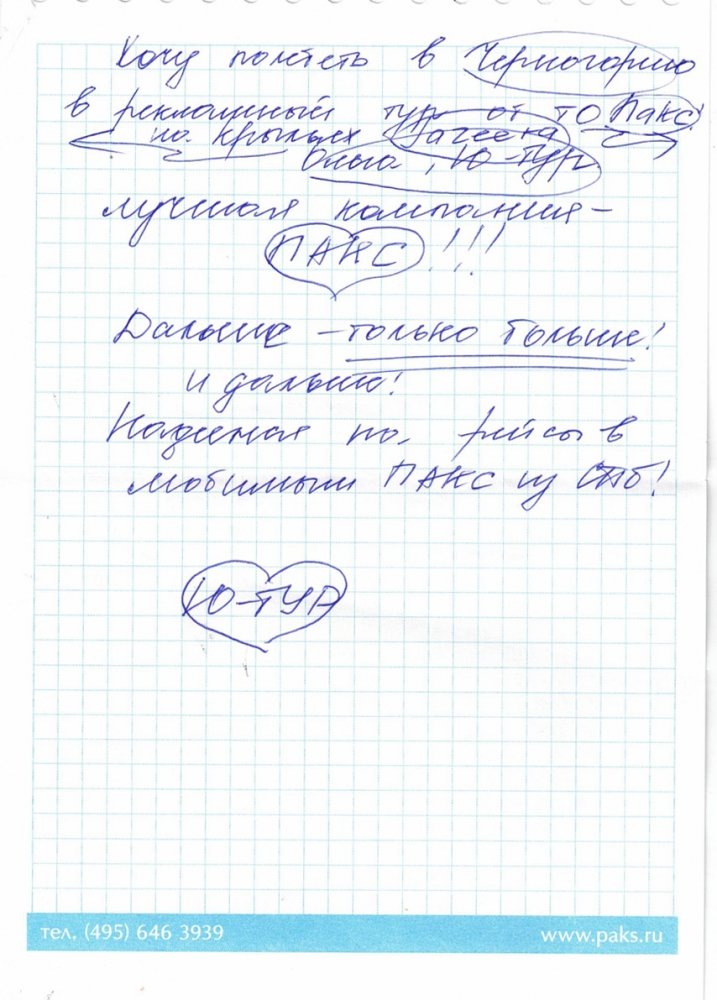 Хочу полететь в Черногорию
в рекламный тур от ТО Пакс!
на крыльях
Ольга, Ю-Тур
лучшая компания –
ПАКС !!!
Дальше – только больше!
и дальше!
Надеемся на рейсы в
любимый ПАКС из СПб!
Ю-ТУР
тел. (495) 646 3939
www.paks.ru